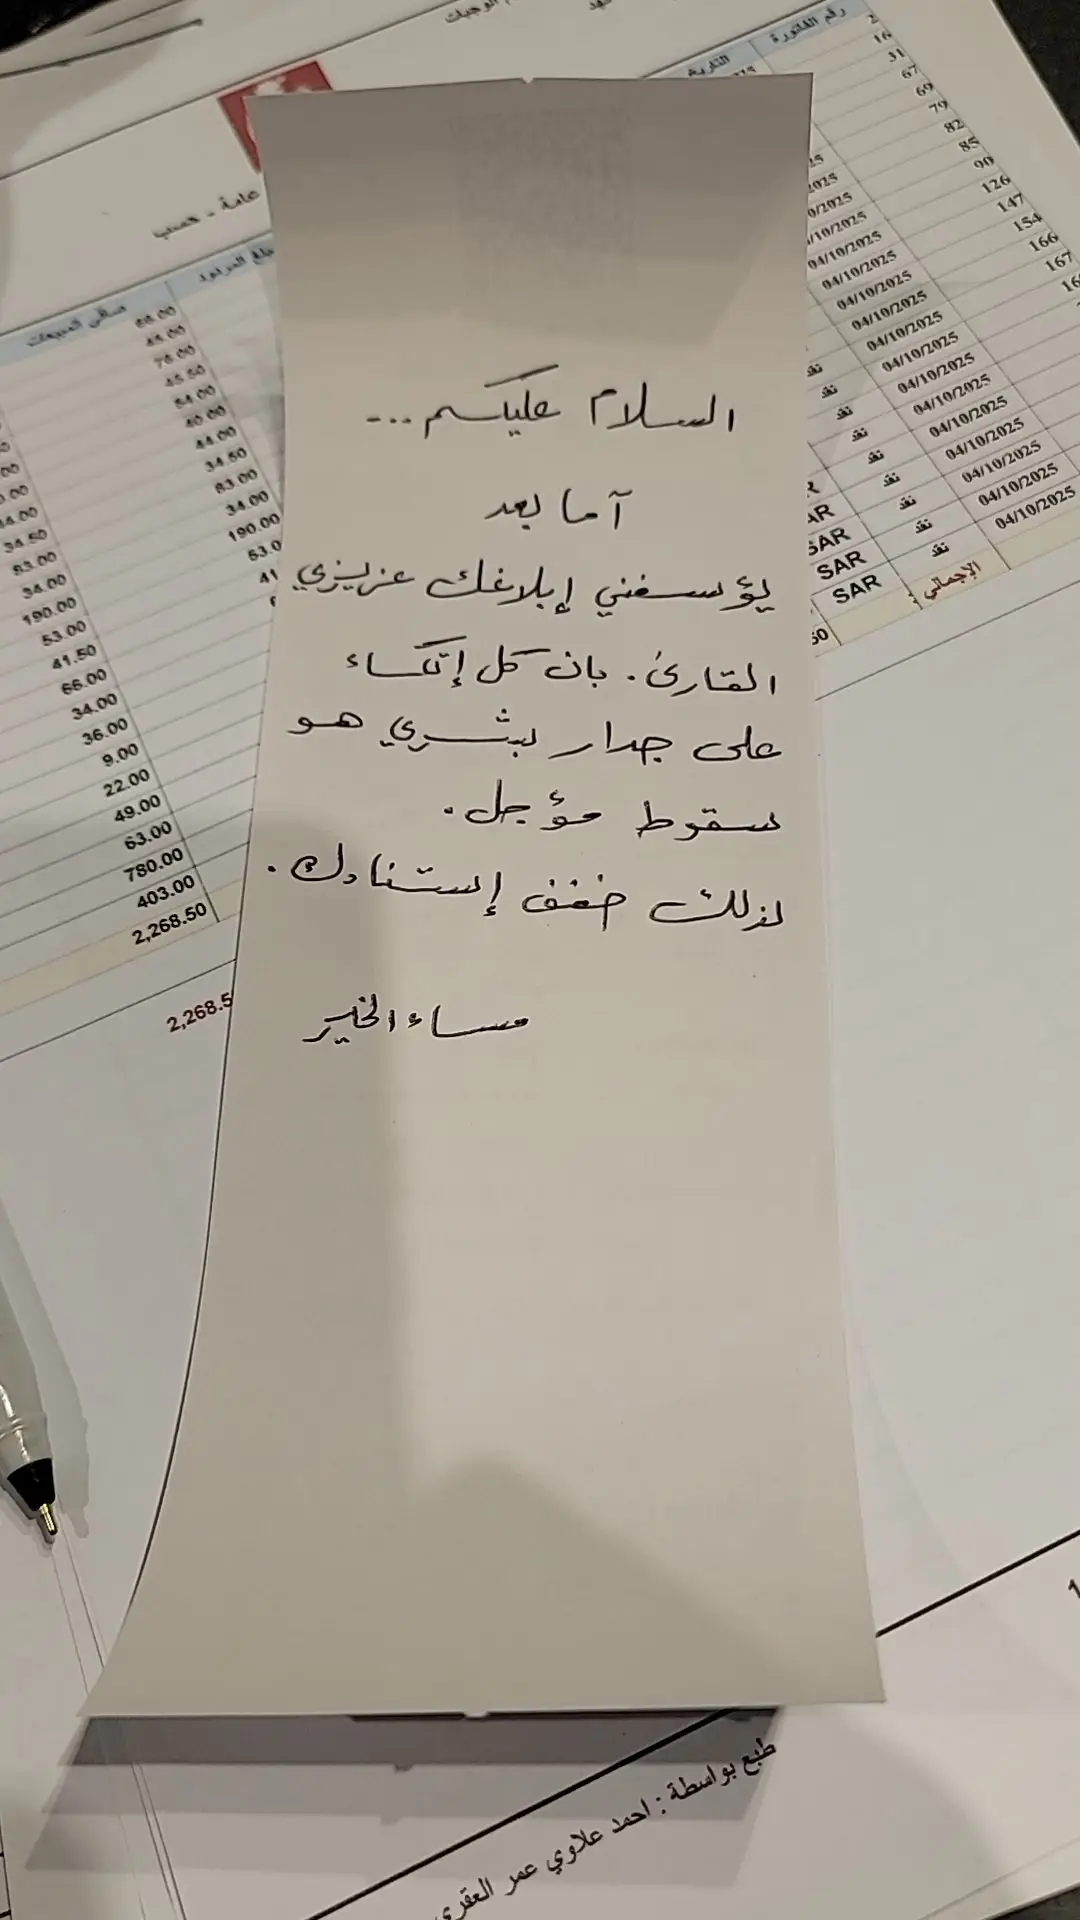 السلام عليكم...
آما بعد
يؤسفني إبلاغك عزيزي
القارئ. بان كل إتكساء
على جدار بشري هو
سقوط مؤجل.
لذلك خفف إستنادك.
مساء الخير
رقم الفاتورة
التاريخ
عامة - حسب
صافي المبيعات
66.00
45.00
76.00
45.50
54.00
40.00
44.00
34.50
83.00
34.00
190.00
34.50
83.00
34.00
190.00
53.00
41.50
66.00
34.00
36.00
9.00
22.00
49.00
63.00
780.00
403.00
2,268.50
2
16
31
67
69
79
82
85
90
126
147
154
166
167
04/10/2025
04/10/2025
04/10/2025
04/10/2025
04/10/2025
04/10/2025
04/10/2025
04/10/2025
04/10/2025
04/10/2025
04/10/2025
04/10/2025
04/10/2025
نقد
نقد
نقد
نقد
نقد
نقد
نقد
نقد
نقد
SAR
SAR
SAR
الإجمالي
طبع بواسطة : احمد علاوي عمر العقري